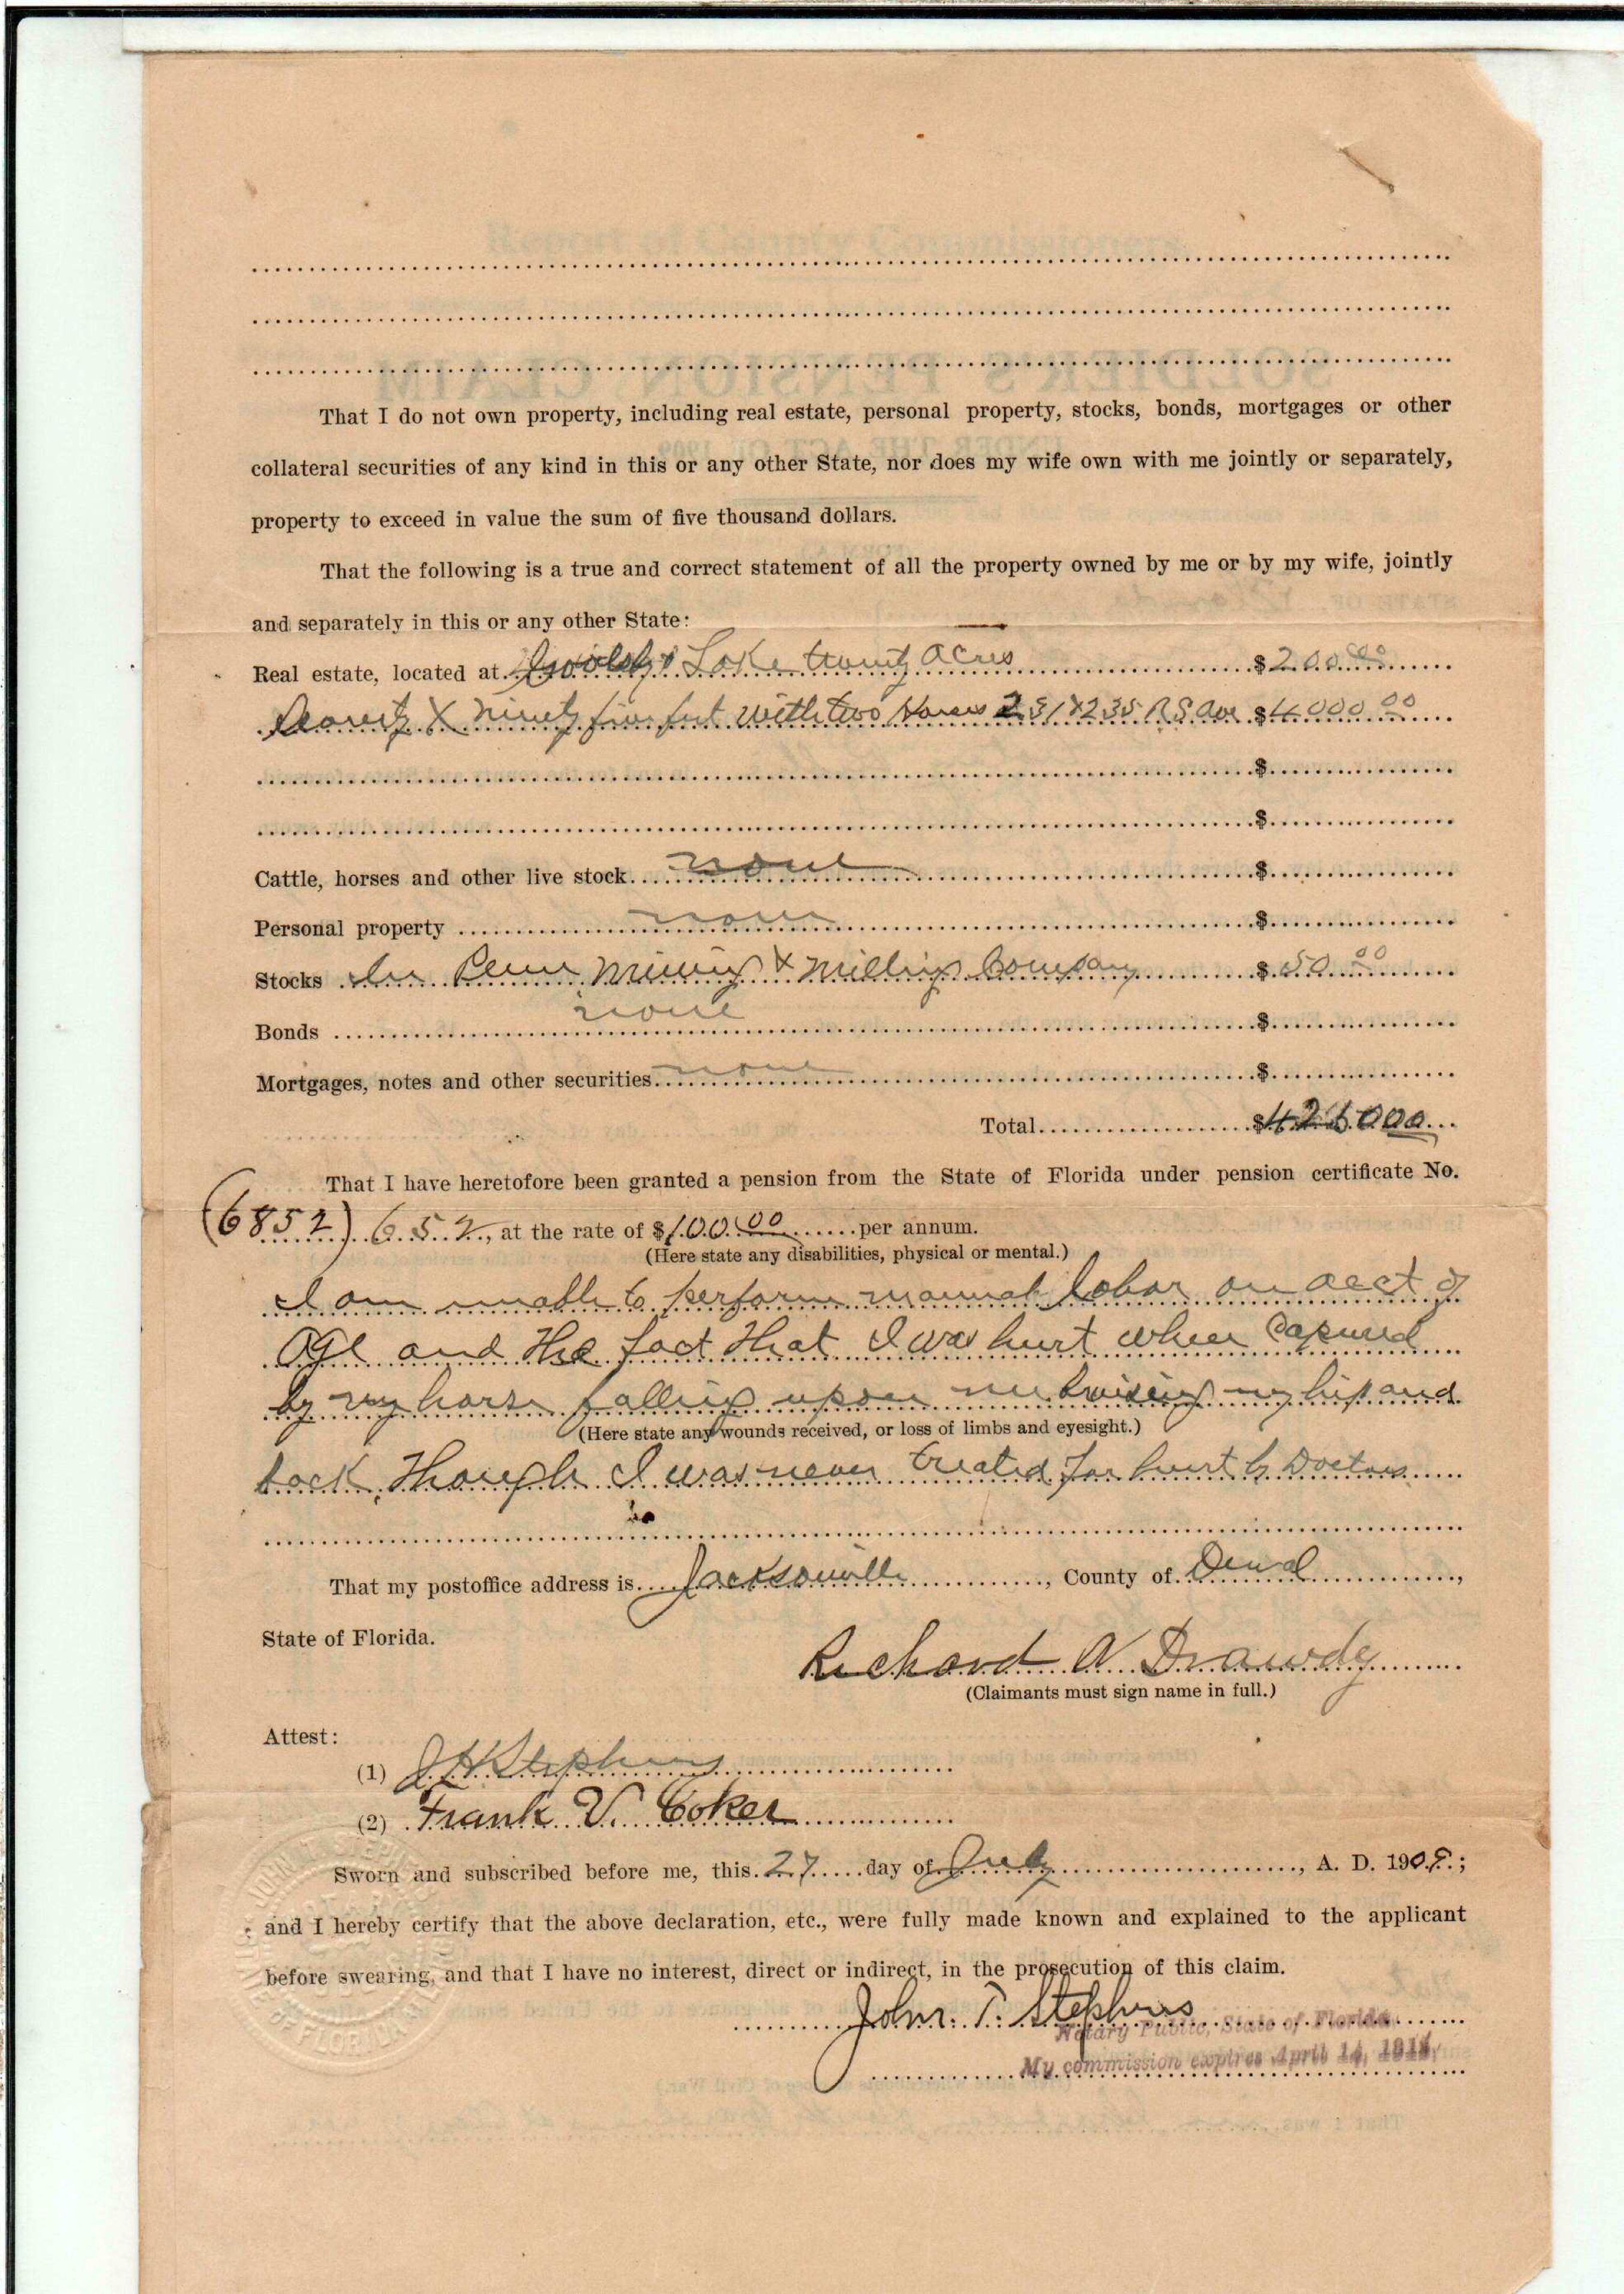 That I do not own property, including real estate, personal property, stocks, bonds, mortgages or other
collateral securities of any kind in this or any other State, nor does my wife own with me jointly or separately,
property to exceed in value the sum of five thousand dollars.
That the following is a true and correct statement of all the property owned by me or by my wife, jointly
and separately in this or any other State:
Real estate, located at Lake twenty acres $200 00
X ninety five feet with two houses 231 & 235 $4000 00
$
$
Cattle, horses and other live stock none $
Personal property none $
Stocks In Penn Mining & Milling Company $50 00
Bonds none $
Mortgages, notes and other securities none $
Total $4250 00
That I have heretofore been granted a pension from the State of Florida under pension certificate No.
(6852) 652, at the rate of $100.00 per annum.
(Here state any disabilities, physical or mental.)
I am unable to perform manual labor on acct of
age and the fact that I was hurt when Capured
by my horse falling upon me bruising my hip and
(Here state any wounds received, or loss of limbs and eyesight.)
back, though I was never treated for hurt by Doctors
That my postoffice address is Jacksonville, County of Duval,
State of Florida.
Richard A Drawdy
(Claimants must sign name in full.)
Attest:
(1) J H Stephens
(2) Frank V. Coker
Sworn and subscribed before me, this 27 day of July, A. D. 1909;
and I hereby certify that the above declaration, etc., were fully made known and explained to the applicant
before swearing, and that I have no interest, direct or indirect, in the prosecution of this claim.
John. T. Stephens
Notary Public, State of Florida
My commission expires April 14,